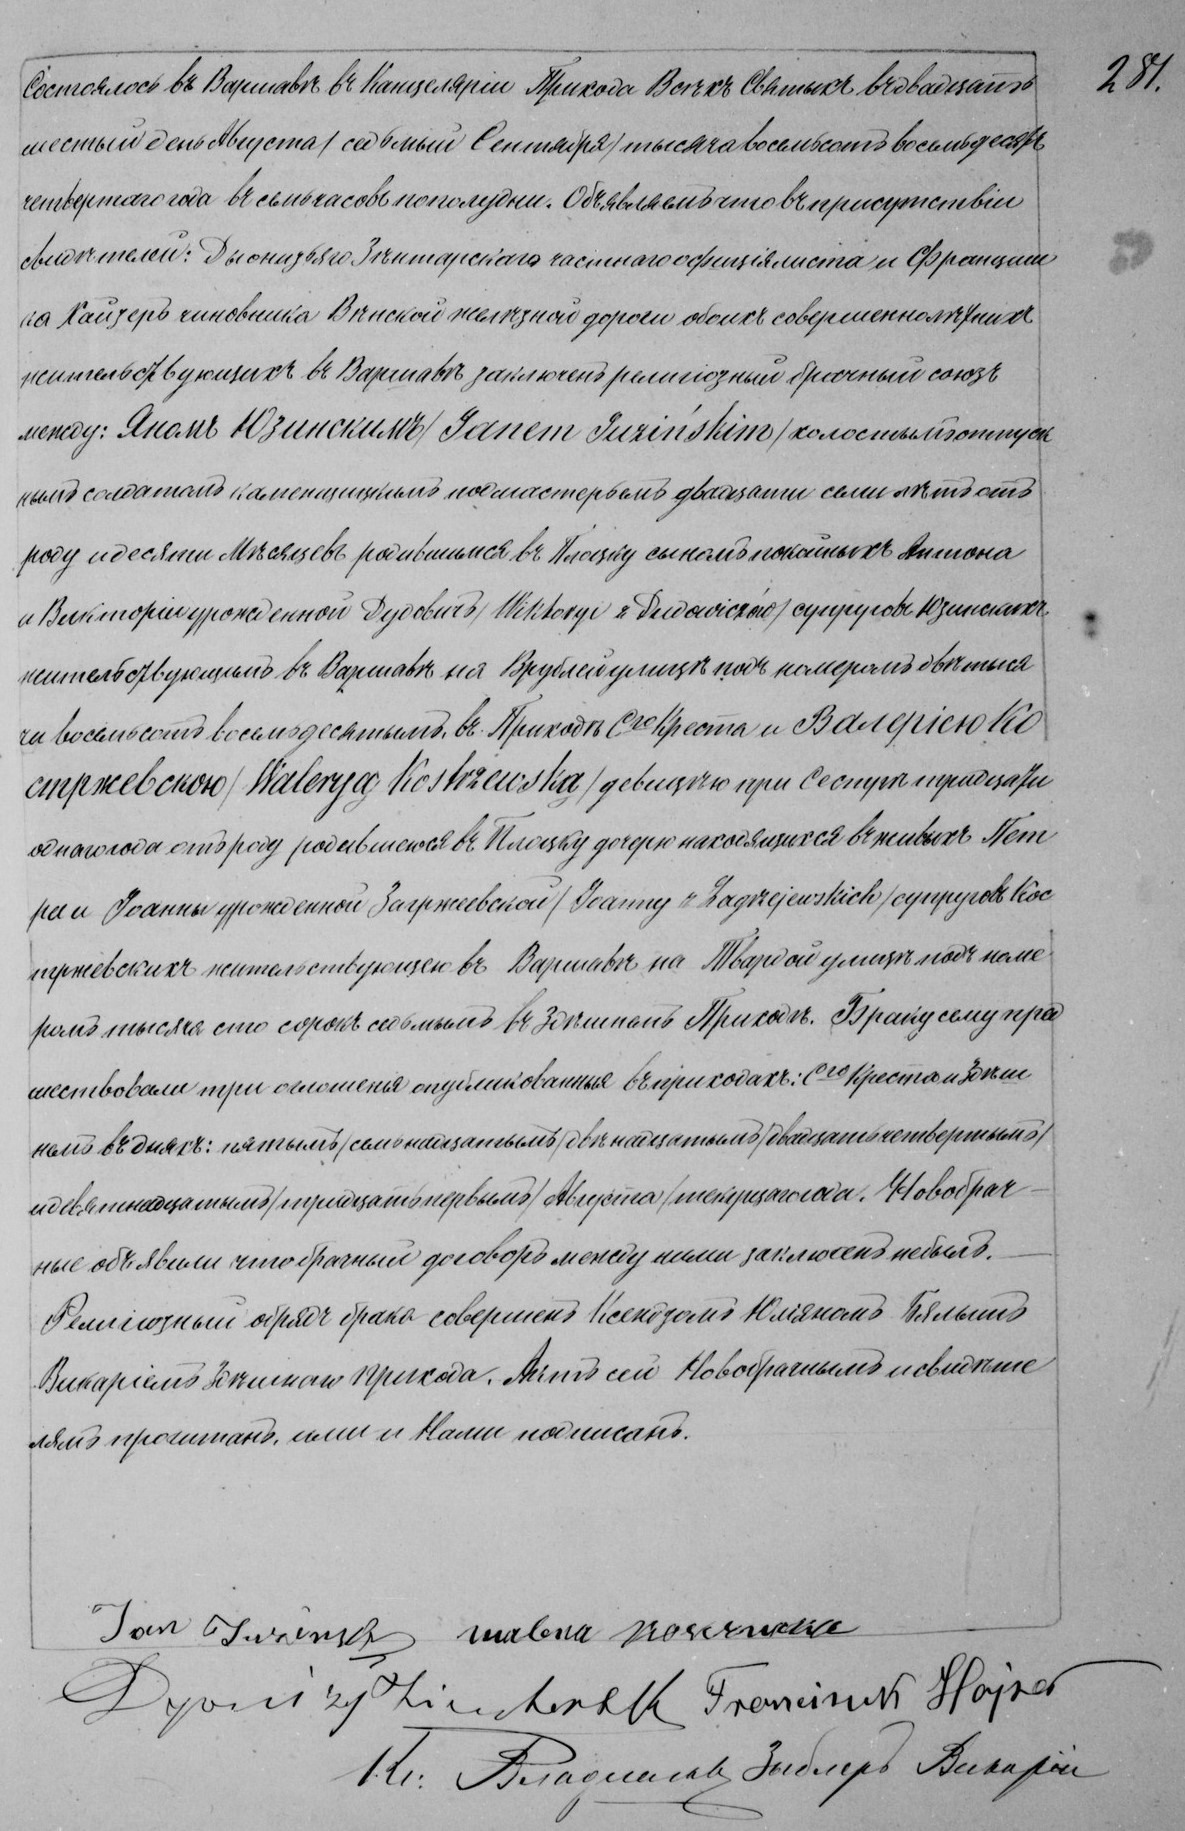 281.
Состоялось въ Варшавѣ въ Канцеляріи Прихода Всѣхъ Святыхъ въ двадцать
шестый день Августа / седьмый Сентября / тысяча восемьсотъ восемьдесятъ
четвертаго года въ семь часовъ пополудни. Объявляемъ что въ присутствіи
свидѣтелей: Дыонизьяго Зѣнтарскаго частнаго офиціялиста и Франциш
ка Хайзеръ чиновника Вѣнской желѣзной дороги обоихъ совершеннолѣтнихъ
жительствующихъ въ Варшавѣ заключенъ религіозный брачный союзъ
между: Яномъ Юзинскимъ / Janem Juzińskim / холостымъ отпуск
нымъ солдатомъ каменщицкимъ подмастерьемъ двадцати семи лѣтъ отъ
роду и десяти Мѣсяцевъ родившимся въ Плоцку сыномъ покойныхъ Антона
и Викторіи урожденной Дудовичъ / Wiktoryi z Dudowiczów / супруговъ Юзинскихъ
жительствующимъ въ Варшавѣ на Врублей улицѣ подъ номеромъ двѣ тыся
чи восемьсотъ восемьдесятымъ въ Приходѣ Сго Креста и Валеріею Ко
стржевскою / Waleryą Kostrzewską / девицею при Сестрѣ тридцати
однаго года отъ роду родившеюся въ Плоцку дочерю находящихся въ живыхъ Пет
ра и Іоанны урожденной Загржеевской / Joanny z Zagrzejewskich / супруговъ Кос
тржевскихъ жительствующею въ Варшавѣ на Твардой улицѣ подъ номе
ромъ тысяча сто сорокъ седьмымъ въ здѣшномъ Приходѣ. Браку сему пред
шествовали три оглошенія опубликованныя въ приходахъ: Сго Креста и Здѣш
немъ въ дняхъ: пятымъ / семьнадцатымъ / двѣнадцатымъ / двадцать четвертымъ /
и девятнадцатымъ / тридцать первымъ / Августа / текущаго года. Новобрач
ные объявили что брачный договоръ между ними заключенъ небылъ.
Религіозный обрядъ брака совершенъ Ксендзомъ Юліяномъ Бялымъ
Викаріемъ Здѣшнаго Прихода. Актъ сей Новобрачнымъ и свидѣте
лямъ прочитанъ, ими и Нами подписанъ.
Jan Juzińsk
Franciszek Hajzer
Кс. Владиславъ Зыблеръ Викарій